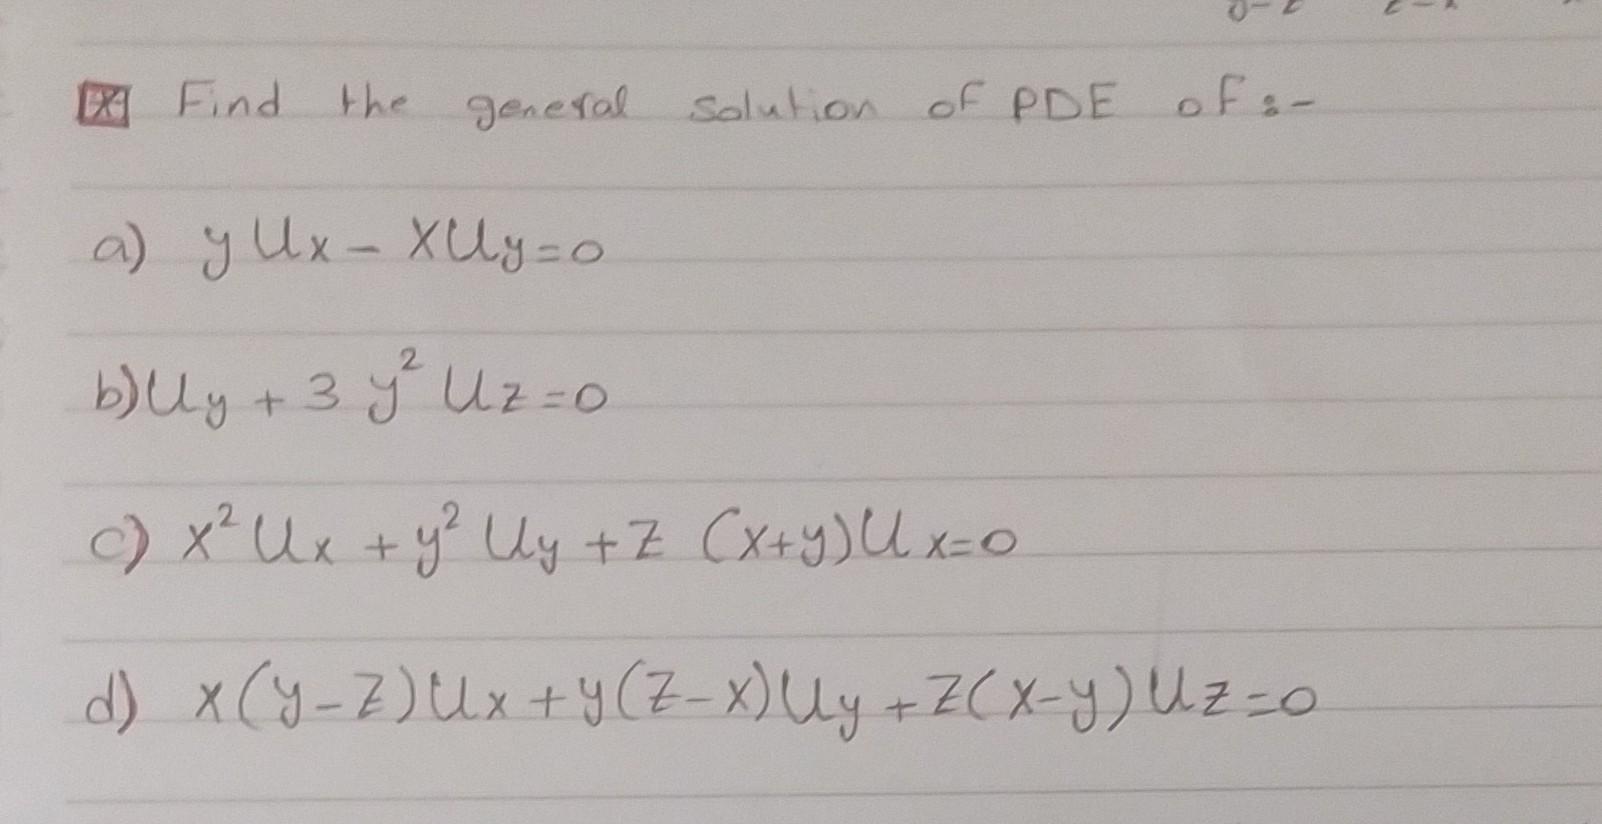 [x] Find the general solution of PDE of:-
a) y Ux - XUy=0
b) Uy + 3 y² Uz=0
c) x² Ux + y² Uy + z (x+y)Ux=0
d) x(y-z)Ux + y(z-x)Uy + z(x-y)Uz=0